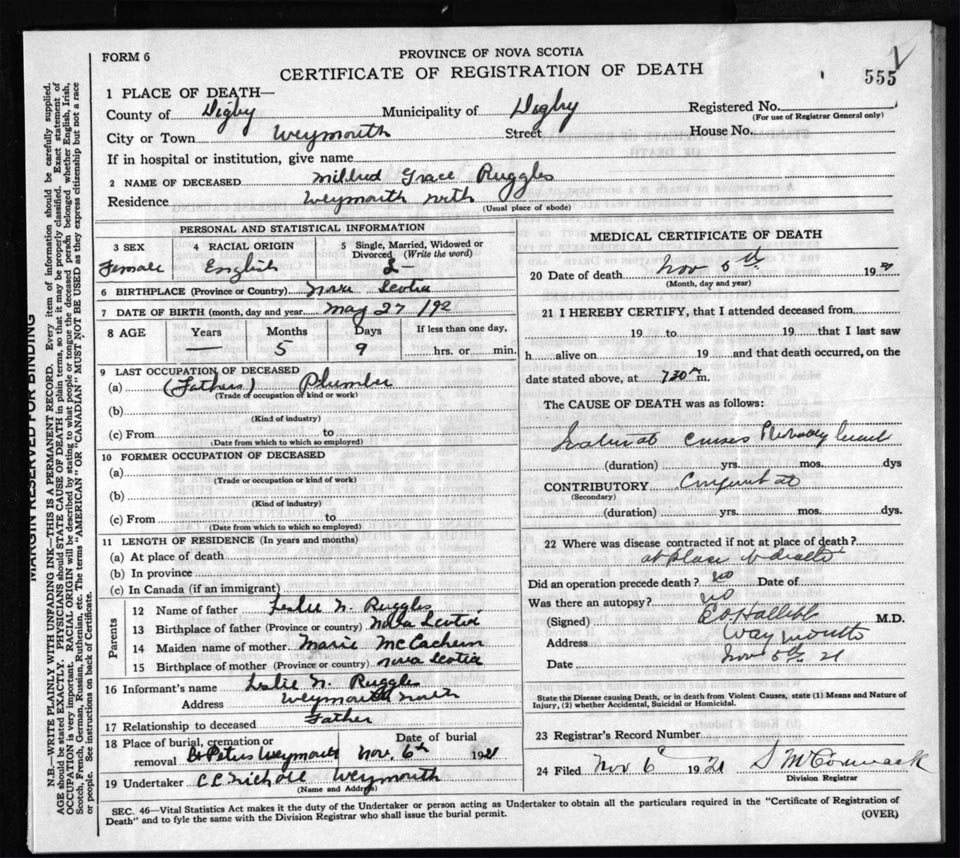 FORM 6
PROVINCE OF NOVA SCOTIA
CERTIFICATE OF REGISTRATION OF DEATH
555
1 PLACE OF DEATH—
County of Digby Municipality of Digby Registered No.
(For use of Registrar General only)
City or Town Weymouth Street House No.
If in hospital or institution, give name
2 NAME OF DECEASED Mildred Grace Ruggles
Residence Weymouth North
(Usual place of abode)
PERSONAL AND STATISTICAL INFORMATION
3 SEX 4 RACIAL ORIGIN 5 Single, Married, Widowed or Divorced (Write the word)
Female English S—
6 BIRTHPLACE (Province or Country) Nova Scotia
7 DATE OF BIRTH (month, day and year) May 27 192
8 AGE Years Months Days If less than one day,
— 5 9 hrs. or min.
9 LAST OCCUPATION OF DECEASED
(a) (Fathers) Plumber
(Trade or occupation or kind or work)
(b)
(Kind of industry)
(c) From to
(Date from which to which so employed)
10 FORMER OCCUPATION OF DECEASED
(a)
(Trade or occupation or kind or work)
(b)
(Kind of industry)
(c) From to
(Date from which to which so employed)
11 LENGTH OF RESIDENCE (In years and months)
(a) At place of death
(b) In province
(c) In Canada (if an immigrant)
Parents
12 Name of father Leslie N. Ruggles
13 Birthplace of father (Province or country) Nova Scotia
14 Maiden name of mother Marie McEachern
15 Birthplace of mother (Province or country) Nova Scotia
16 Informant's name Leslie N. Ruggles
Address Weymouth North
17 Relationship to deceased Father
18 Place of burial, cremation or Date of burial
removal St Peters Weymouth Nov. 6th 1921
19 Undertaker C C Nicholl Weymouth
(Name and Address)
MEDICAL CERTIFICATE OF DEATH
20 Date of death Nov 5th 1921
(Month, day and year)
21 I HEREBY CERTIFY, that I attended deceased from
19 to 19 that I last saw
h alive on 19 and that death occurred, on the
date stated above, at 7.30 m.
The CAUSE OF DEATH was as follows:
causes
(duration) yrs. mos. dys
CONTRIBUTORY
(Secondary)
(duration) yrs. mos. dys.
22 Where was disease contracted if not at place of death?
at place of death
Did an operation precede death? no Date of
Was there an autopsy? no
(Signed) M.D.
Address Weymouth
Date Nov 5th 21
State the Disease causing Death, or in death from Violent Causes, state (1) Means and Nature of
Injury, (2) whether Accidental, Suicidal or Homicidal.
23 Registrar's Record Number
24 Filed Nov 6 1921 S McCormack
Division Registrar
SEC. 46—Vital Statistics Act makes it the duty of the Undertaker or person acting as Undertaker to obtain all the particulars required in the "Certificate of Registration of
Death" and to fyle the same with the Division Registrar who shall issue the burial permit. (OVER)
MARGIN RESERVED FOR BINDING
N.B.—WRITE PLAINLY WITH UNFADING INK—THIS IS A PERMANENT RECORD. Every item of information should be carefully supplied.
AGE should be stated EXACTLY. PHYSICIANS should STATE CAUSE OF DEATH in plain terms, so that it may be properly classified. Exact statement of
OCCUPATION is very important. RACIAL ORIGIN will be described by stating to what people or tongue the deceased person belonged whether English, Irish,
Scotch, French, German, Russian, Ruthenian, etc. The terms "AMERICAN" OR "CANADIAN" MUST NOT BE USED as they express citizenship but not a race
or people. See instructions on back of Certificate.